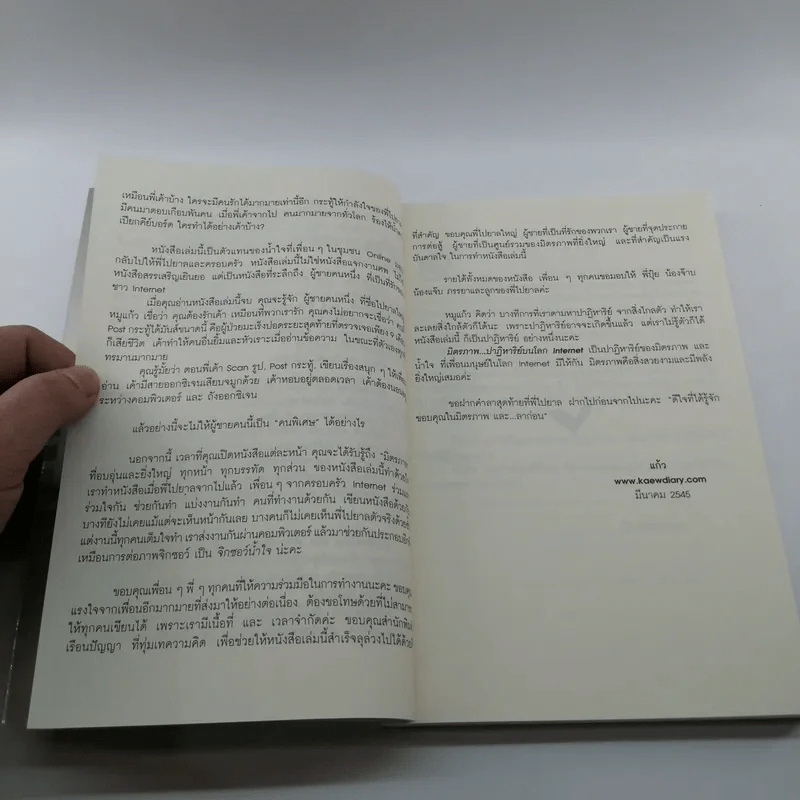 เหมือนพี่เค้าบ้าง ใครจะมีคนรักได้มากมายเท่านี้อีก กระทู้ให้กำลังใจของพี่ไปยาล
มีคนมาตอบเกือบพันคน เมื่อพี่เค้าจากไป คนมากมายจากทั่วโลก ร้องไห้น้ำตา
เปียกคีย์บอร์ด ใครทำได้อย่างเค้าบ้าง?
หนังสือเล่มนี้เป็นตัวแทนของน้ำใจที่เพื่อน ๆ ในชุมชน Online
กลับไปให้พี่ไปยาลและครอบครัว หนังสือเล่มนี้ไม่ใช่หนังสือแจกงานศพ
หนังสือสรรเสริญเยินยอ แต่เป็นหนังสือที่ระลึกถึง ผู้ชายคนหนึ่ง ที่เป็นที่รัก
ชาว Internet
เมื่อคุณอ่านหนังสือเล่มนี้จบ คุณจะรู้จัก ผู้ชายคนหนึ่ง ที่ชื่อไปยาลใหญ่
หมูแก้ว เชื่อว่า คุณต้องรักเค้า เหมือนที่พวกเรารัก คุณคงไม่อยากจะเชื่อว่า
Post กระทู้ได้มันส์ขนาดนี้ คือผู้ป่วยมะเร็งปอดระยะสุดท้ายที่ตรวจเจอเพียง 9 เดือน
ก็เสียชีวิต เค้าทำให้คนอื่นยิ้มและหัวเราะเมื่ออ่านข้อความ ในขณะที่ตัวเอง
ทรมานมากมาย
คุณรู้มั้ยว่า ตอนพี่เค้า Scan รูป, Post กระทู้, เขียนเรื่องสนุก ๆ ให้เพื่อน
อ่าน เค้ามีสายออกซิเจนเสียบจมูกด้วย เค้าหอบอยู่ตลอดเวลา เค้าต้อง
ระหว่างคอมพิวเตอร์ และ ถังออกซิเจน
แล้วอย่างนี้จะไม่ให้ผู้ชายคนนี้เป็น "คนพิเศษ" ได้อย่างไร
นอกจากนี้ เวลาที่คุณเปิดหนังสือแต่ละหน้า คุณจะได้รับรู้ถึง "มิตรภาพ"
ที่อบอุ่นและยิ่งใหญ่ ทุกหน้า ทุกบรรทัด ทุกส่วน ของหนังสือเล่มนี้ทำด้วย
เราทำหนังสือเมื่อพี่ไปยาลจากไปแล้ว เพื่อน ๆ จากครอบครัว Internet ร่วม
ร่วมใจกัน ช่วยกันทำ แบ่งงานกันทำ คนที่ทำงานด้วยกัน เขียนหนังสือด้วยกัน
บางทียังไม่เคยแม้แต่จะเห็นหน้ากันเลย บางคนก็ไม่เคยเห็นพี่ไปยาลตัวจริงด้วยซ้ำ
แต่งานนี้ทุกคนเต็มใจทำ เราส่งงานกันผ่านคอมพิวเตอร์ แล้วมาช่วยกันประกอบ
เหมือนการต่อภาพจิกซอว์ เป็น จิกซอว์น้ำใจ น่ะคะ
ขอบคุณเพื่อน ๆ พี่ ๆ ทุกคนที่ให้ความร่วมมือในการทำงานนะคะ ขอบคุณ
แรงใจจากเพื่อนอีกมากมายที่ส่งมาให้อย่างต่อเนื่อง ต้องขอโทษด้วยที่ไม่สามารถ
ให้ทุกคนเขียนได้ เพราะเรามีเนื้อที่ และ เวลาจำกัดค่ะ ขอบคุณสำนักพิมพ์
เรือนปัญญา ที่ทุ่มเทความคิด เพื่อช่วยให้หนังสือเล่มนี้สำเร็จลุล่วงไปได้ด้วยดี
ที่สำคัญ ขอบคุณพี่ไปยาลใหญ่ ผู้ชายที่เป็นที่รักของพวกเรา ผู้ชายที่จุดประกาย
การต่อสู้ ผู้ชายที่เป็นศูนย์รวมของมิตรภาพที่ยิ่งใหญ่ และที่สำคัญเป็นแรง
บันดาลใจ ในการทำหนังสือเล่มนี้
รายได้ทั้งหมดของหนังสือ เพื่อน ๆ ทุกคนขอมอบให้ พี่ปุ้ย น้องจ๊าบ
น้องแจ๊บ ภรรยาและลูกของพี่ไปยาลค่ะ
หมูแก้ว คิดว่า บางทีการที่เราตามหาปาฏิหาริย์ จากสิ่งไกลตัว ทำให้เรา
ละเลยสิ่งใกล้ตัวก็ได้นะ เพราะปาฏิหาริย์อาจจะเกิดขึ้นแล้ว แต่เราไม่รู้ตัวก็ได้
หนังสือเล่มนี้ ก็เป็นปาฏิหาริย์ อย่างหนึ่งค่ะ
มิตรภาพ...ปาฏิหาริย์บนโลก Internet เป็นปาฏิหาริย์ของมิตรภาพ และ
น้ำใจ ที่เพื่อนมนุษย์ในโลก Internet มีให้กัน มิตรภาพคือสิ่งสวยงามและมีพลัง
ยิ่งใหญ่เสมอค่ะ
ขอฝากคำลาสุดท้ายที่พี่ไปยาล ฝากไปก่อนจากไปนะคะ "ดีใจที่ได้รู้จัก
ขอบคุณในมิตรภาพ และ...ลาก่อน"
แก้ว
www.kaewdiary.com
มีนาคม 2545